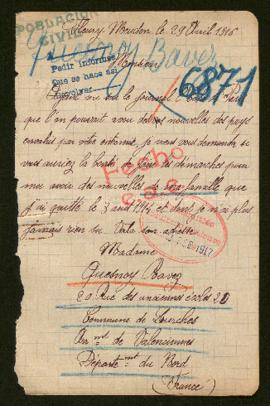 POBLACION
CIVIL
Fleury Meudon le 29 Avril 1916
Quesnoy Bavez
Monsieur
Pedir informes
que se haga así
6871
vu sur le journal Paris
que l'on pouvait avoir des nouvelles des pays
envahis par votre entremise, je vous demanderai si
vous auriez la bonté de faire des démarches pour
me avoir des nouvelles de ma famille que
j'ai quitté le 3 août 1914 et dont je n'ai plus
jamais rien su. Voila son adresse
Fecho
1917
Madame
Quesnoy Bavez
20 Rue des anciennes écoles 20
Commune de Lourches
Arr.mt de Valenciennes
Départe.mt du Nord
(France)